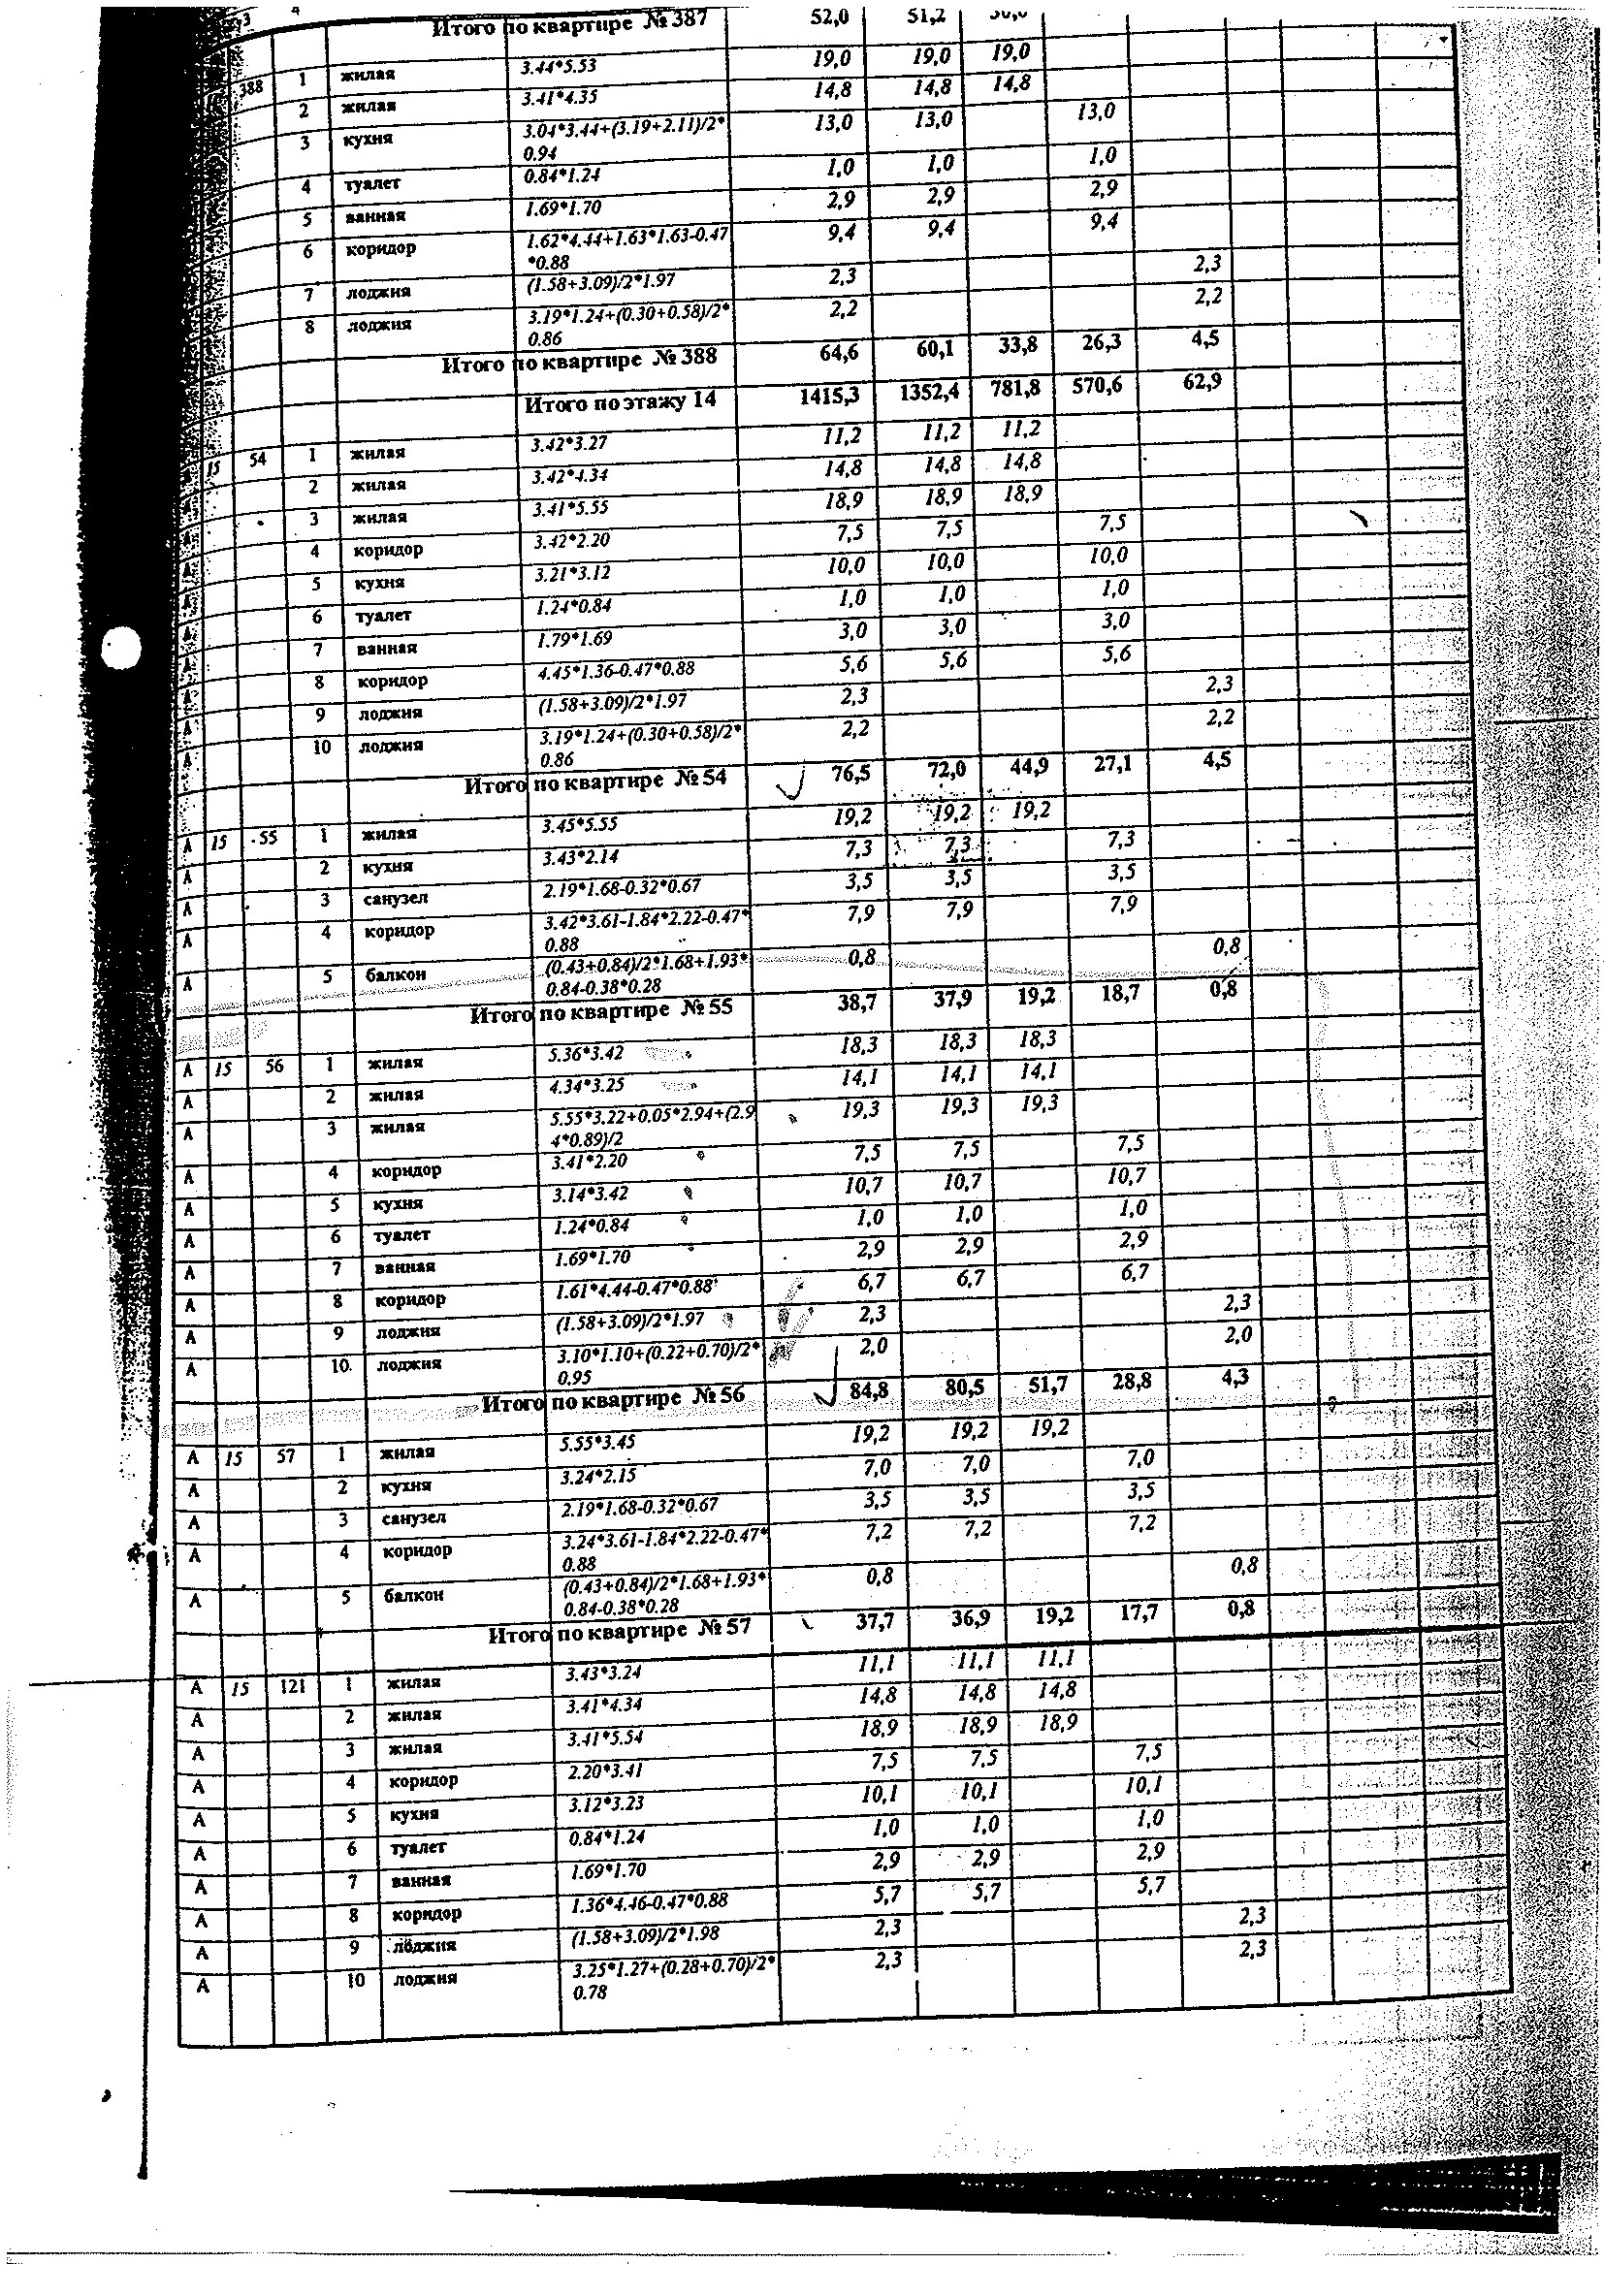 3 4
Итого по квартире № 387 52,0 51,2
388 1 жилая 3.44*5.53 19,0 19,0 19,0
2 жилая 3.41*4.35 14,8 14,8 14,8
3 кухня 3.04*3.44+(3.19+2.11)/2* 13,0 13,0 13,0
0.94
4 туалет 0.84*1.24 1,0 1,0 1,0
5 ванная 1.69*1.70 2,9 2,9 2,9
6 коридор 1.62*4.44+1.63*1.63-0.47 9,4 9,4 9,4
*0.88
7 лоджия (1.58+3.09)/2*1.97 2,3 2,3
8 лоджия 3.19*1.24+(0.30+0.58)/2* 2,2 2,2
0.86
Итого по квартире № 388 64,6 60,1 33,8 26,3 4,5
Итого по этажу 14 1415,3 1352,4 781,8 570,6 62,9
15 54 1 жилая 3.42*3.27 11,2 11,2 11,2
А 2 жилая 3.42*4.34 14,8 14,8 14,8
А 3 жилая 3.41*5.55 18,9 18,9 18,9
А 4 коридор 3.42*2.20 7,5 7,5 7,5
А 5 кухня 3.21*3.12 10,0 10,0 10,0
А 6 туалет 1.24*0.84 1,0 1,0 1,0
А 7 ванная 1.79*1.69 3,0 3,0 3,0
А 8 коридор 4.45*1.36-0.47*0.88 5,6 5,6 5,6
А 9 лоджия (1.58+3.09)/2*1.97 2,3 2,3
А 10 лоджия 3.19*1.24+(0.30+0.58)/2* 2,2 2,2
0.86
Итого по квартире № 54 76,5 72,0 44,9 27,1 4,5
А 15 55 1 жилая 3.45*5.55 19,2 19,2 19,2
А 2 кухня 3.43*2.14 7,3 7,3 7,3
А 3 санузел 2.19*1.68-0.32*0.67 3,5 3,5 3,5
А 4 коридор 3.42*3.61-1.84*2.22-0.47* 7,9 7,9 7,9
0.88
А 5 балкон (0.43+0.84)/2*1.68+1.93* 0,8 0,8
0.84-0.38*0.28
Итого по квартире № 55 38,7 37,9 19,2 18,7 0,8
А 15 56 1 жилая 5.36*3.42 18,3 18,3 18,3
А 2 жилая 4.34*3.25 14,1 14,1 14,1
А 3 жилая 5.55*3.22+0.05*2.94+(2.9 19,3 19,3 19,3
4*0.89)/2
А 4 коридор 3.41*2.20 7,5 7,5 7,5
А 5 кухня 3.14*3.42 10,7 10,7 10,7
А 6 туалет 1.24*0.84 1,0 1,0 1,0
А 7 ванная 1.69*1.70 2,9 2,9 2,9
А 8 коридор 1.61*4.44-0.47*0.88 6,7 6,7 6,7
А 9 лоджия (1.58+3.09)/2*1.97 2,3 2,3
А 10 лоджия 3.10*1.10+(0.22+0.70)/2* 2,0 2,0
0.95
Итого по квартире № 56 84,8 80,5 51,7 28,8 4,3
А 15 57 1 жилая 5.55*3.45 19,2 19,2 19,2
А 2 кухня 3.24*2.15 7,0 7,0 7,0
А 3 санузел 2.19*1.68-0.32*0.67 3,5 3,5 3,5
А 4 коридор 3.24*3.61-1.84*2.22-0.47* 7,2 7,2 7,2
0.88
А 5 балкон (0.43+0.84)/2*1.68+1.93* 0,8 0,8
0.84-0.38*0.28
Итого по квартире № 57 37,7 36,9 19,2 17,7 0,8
А 15 121 1 жилая 3.43*3.24 11,1 11,1 11,1
А 2 жилая 3.41*4.34 14,8 14,8 14,8
А 3 жилая 3.41*5.54 18,9 18,9 18,9
А 4 коридор 2.20*3.41 7,5 7,5 7,5
А 5 кухня 3.12*3.23 10,1 10,1 10,1
А 6 туалет 0.84*1.24 1,0 1,0 1,0
А 7 ванная 1.69*1.70 2,9 2,9 2,9
А 8 коридор 1.36*4.46-0.47*0.88 5,7 5,7 5,7
А 9 лоджия (1.58+3.09)/2*1.98 2,3 2,3
А 10 лоджия 3.25*1.27+(0.28+0.70)/2* 2,3 2,3
0.78